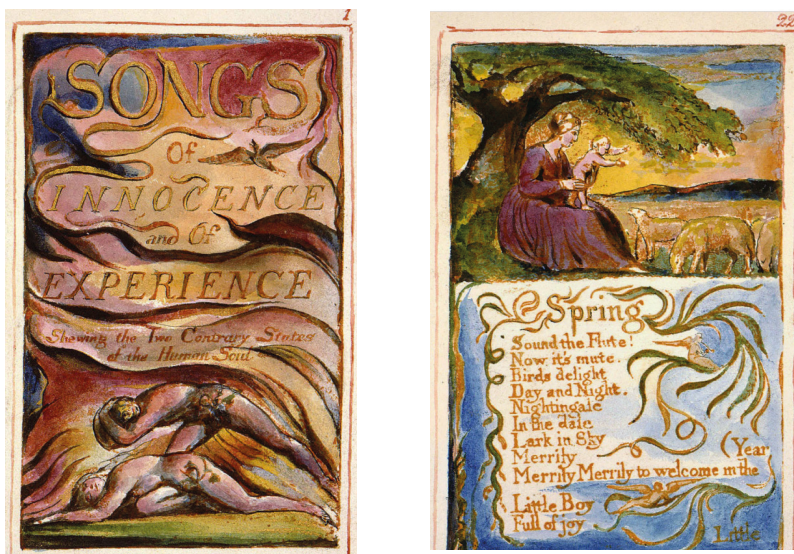 1
SONGS
Of
INNOCENCE
and Of
EXPERIENCE
Shewing the Two Contrary States
of the Human Soul
22
Spring
Sound the Flute!
Now it's mute.
Birds delight
Day and Night.
Nightingale
In the dale
Lark in Sky
Merrily
Merrily Merrily to welcome in the
(Year
Little Boy
Full of joy
Little